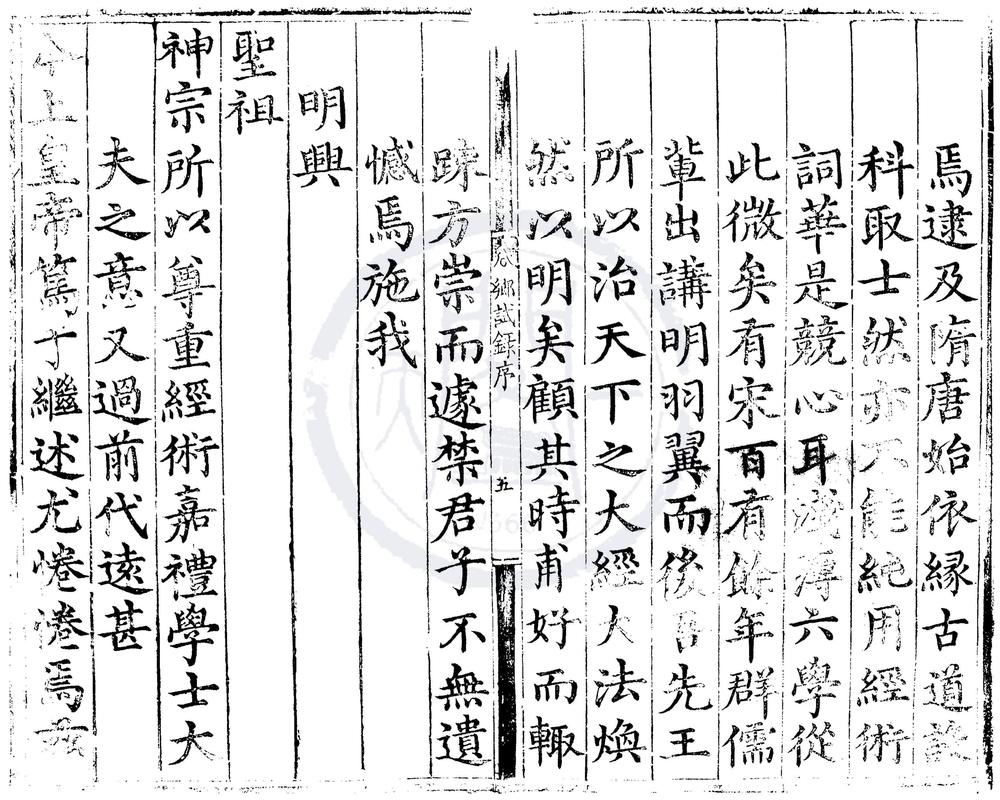 焉逮及隋唐始依緣古道設
科取士然亦不能純用經術
詞華是競心耳淺薄六學從
此微矣有宋百有餘年群儒
軰出講明羽翼而後吾先王
所以治天下之大經大法煥
然以明矣顧其時甫好而輙
鄉試録序
五
踈方崇而遽禁君子不無遺
憾焉施我
明興
聖祖
神宗所以尊重經術嘉禮學士大
夫之意又過前代遠甚
今上皇帝篤于繼述尤惓惓焉茲